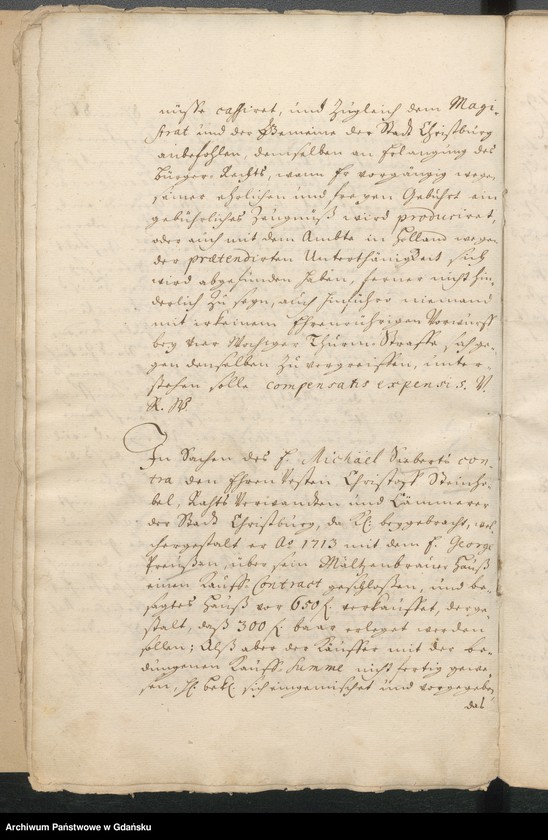 nüsse cassiret, und zugleich dem Magi-
strat und der Gemeine der Stadt Christburg
anbefohlen, demselben an Erlangung des
Bürger-Rechts, wenn Er vorgängig wegen
seiner ehrlichen und freyen Gebuhrt ein
gebührliches Zeugnüß wird produciret,
oder auch mit dem Ambte in Holland wegen
der prætendirten Unterthänigkeit sich
wird abgefunden haben, ferner nicht hin-
derlich zu seyn, auch hinführo niemand
mit irkeinem Ehrenrührigen Vorwurff
bey vier Wochiger Thurm-Straffe, sich ge-
gen denselben zu vergreiffen, unter-
stehen solle compensatis expensis. V.
R. W.
In Sachen des H. Michael Sieberts con-
tra den Ehrenvesten Christoff Steinhö-
bel, Rahts Verwandten und Cämmerer
der Stadt Christburg, da Kl. beygebracht, wel-
chergestalt er Aō 1713 mit dem H. George
Preußen, über sein Mältzenbrauer Hauß
einen Kauff-Contract geschlossen, und be-
sagtes Hauß vor 650 f. verkauffet, derge-
stalt, daß 300 f. baar erleget werden
sollen; Alß aber der Käuffer mit der be-
dungenen Kauff-Summe nicht fertig gewe-
sen, H. Bekl. sich eingemischet und vorgegeben
daß
Archiwum Państwowe w Gdańsku